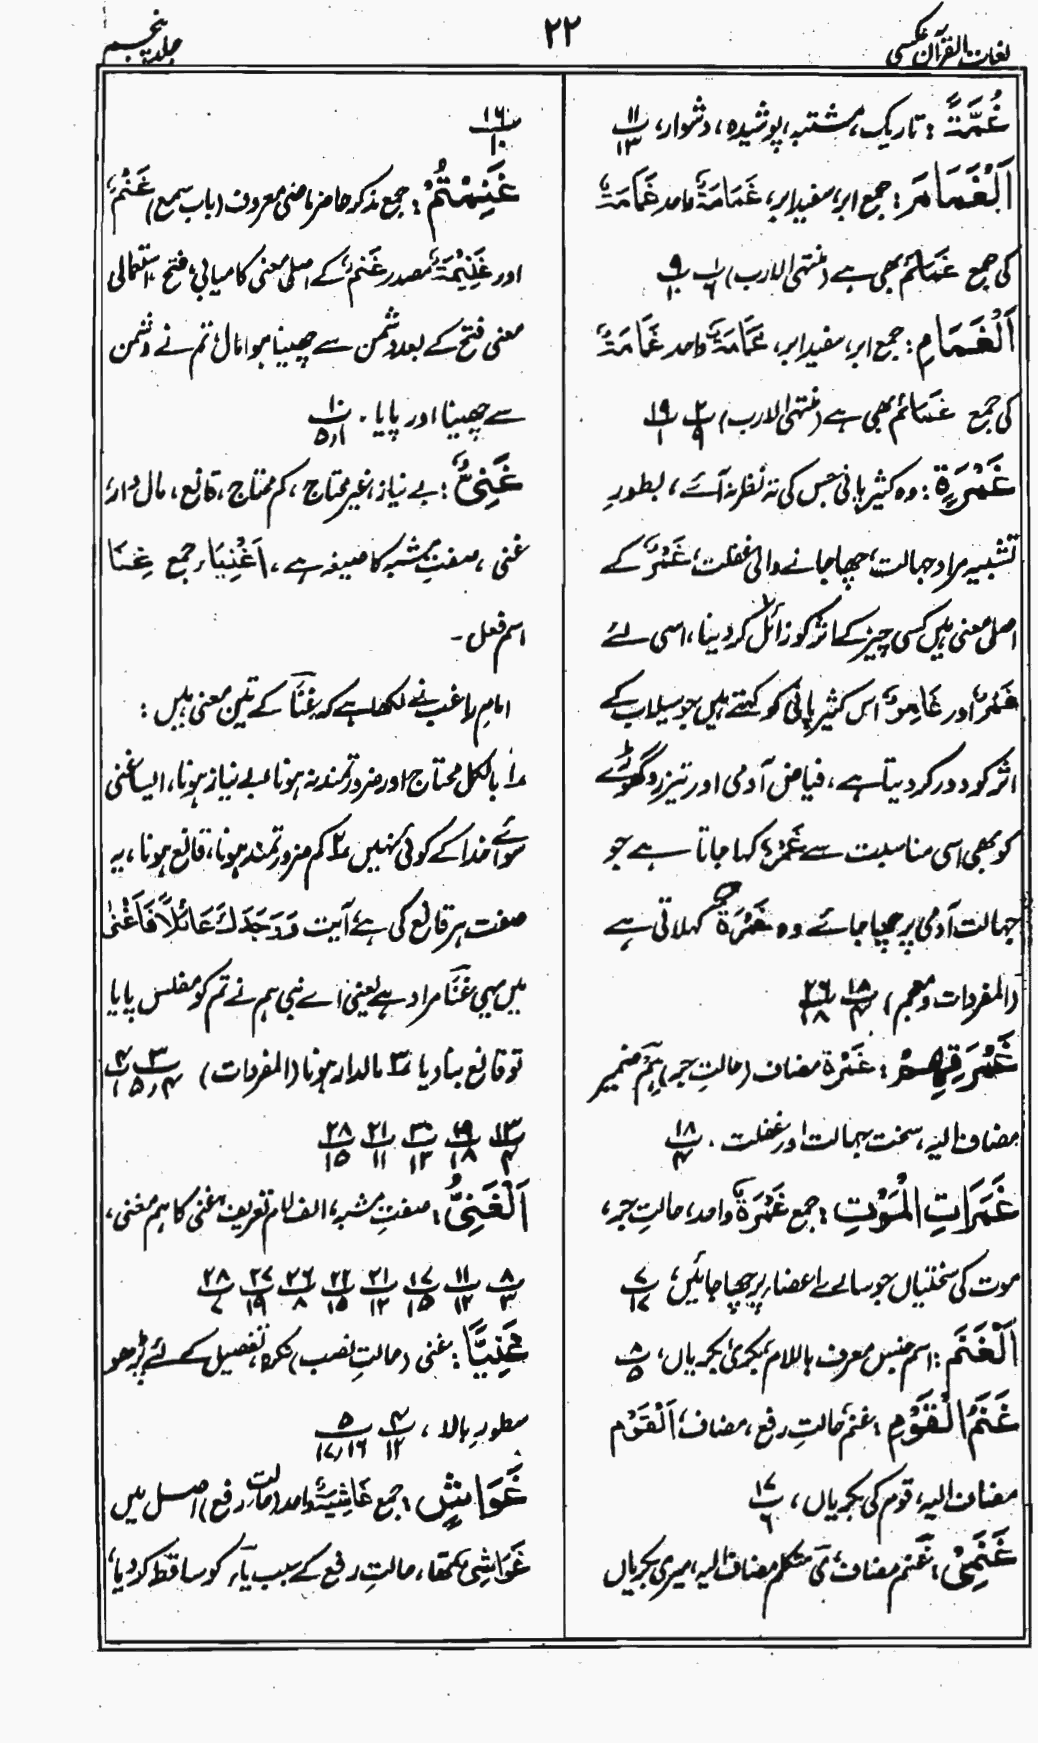 لغات القرآن عکسی
۲۲
جلد پنجم
غُمَّةً : تاریک، مشتبہ، پوشیدہ، دشوار، ۱۱/۱۳
اَلْغَمَامَ : جمع ابر، سفید ابر، غَمَامَۃٌ واحد غَمَامَۃٌ
کی جمع غَمَائم بھی ہے (منتہی الارب) ۱/۶ ۹/۱۰
اَلْغَمَامِ : جمع ابر، سفید ابر، غَمَامَۃٌ واحد غَمَامَۃٌ
کی جمع غمائم بھی ہے (منتہی الارب) ۲/۹ ۱۹/۱
غَمْرَةٍ : وہ کثیر پانی جس کی تہ نظر نہ آئے، بطورِ
تشبیہ مراد جہالت، چھا جانے والی غفلت، غَمْرٌ کے
اصلی معنی ہیں کسی چیز کے اثر کو زائل کر دینا، اسی لئے
غَمْرٌ اور غَامِرٌ اس کثیر پانی کو کہتے ہیں جو سیلاب کے
اثر کو دور کر دیتا ہے، فیاض آدمی اور تیز رو گھوڑے
کو بھی اسی مناسبت سے غَمْرٌ کہا جاتا ہے جو
جہالت آدمی پر چھا جائے وہ غَمْرَۃ کہلاتی ہے
(المفردات ومعجم)، ۱۸/۴ ۲۶/۱۸
غَمْرَتِهِمْ : غَمْرَۃ مضاف (حالتِ جر) ہِمْ ضمیر
مضاف الیہ، سخت جہالت اور غفلت۔ ۱۸/۴
غَمَرَاتِ الْمَوْتِ : جمع غَمْرَۃٌ واحد، حالتِ جر،
موت کی سختیاں جو سارے اعضاء پر چھا جائیں، ۷/۱۷
اَلْغَنَمِ : اسم جنس معرف باللام، بکری، بکریاں، ۸/۵
غَنَمُ الْقَوْمِ : غنم حالتِ رفع، مضاف، اَلْقَوْم
مضاف الیہ، قوم کی بکریاں، ۱۷/۶
غَنَمِیْ : غنم مضاف، ی متکلم مضاف الیہ، میری بکریاں
۱۶/۱۰
غَنِمْتُمْ : جمع مذکر حاضر ماضی معروف (باب سمع) غَنْمٌ
اور غَنِیْمَۃٌ مصدر غَنم کے اصلی معنی کامیابی، فتح، استعمالی
معنی فتح کے بعد دشمن سے چھینا ہوا مال، تم نے دشمن
سے چھینا اور پایا۔ ۱۰/۱،۵
غَنِیٌّ : بے نیاز، غیر محتاج، کم محتاج، قانع، مال دار،
غنی، صفتِ مشبہ کا صیغہ ہے، اَغْنِیَاء جمع غِنَا
اسم فعل۔
امام راغب نے لکھا ہے کہ غِنَا کے تین معنی ہیں :
۱ بالکل محتاج اور ضرورتمند نہ ہونا، بے نیاز ہونا، ایسا غنی
سوائے خدا کے کوئی نہیں ۲ کم ضرورتمند ہونا، قانع ہونا، یہ
صفت ہر قانع کی ہے آیت وَوَجَدَكَ عَائِلًا فَاَغْنٰی
میں یہی غنا مراد ہے یعنی اے نبی ہم نے تم کو مفلس پایا
تو قانع بنا دیا ۳ مالدار ہونا (المفردات) ۳/۴،۵ ۴/۱
۱۳/۴ ۱۹/۱۸ ۲۰/۱۲ ۲۱/۱۱ ۲۸/۱۵
اَلْغَنِیُّ : صفتِ مشبہ، الف لام تعریف، غنی کا ہم معنی،
۸/۳ ۱۱/۱۲ ۱۷/۱۵ ۲۱/۱۲ ۲۲/۱۵ ۲۶/۸ ۲۷/۱۹ ۲۸/۷
غَنِیًّا : غنی (حالتِ نصب) نکرہ، تفصیل کے لئے پڑھو
سطورِ بالا، ۴/۱۲ ۵/۱۶،۱۷
غَوَاشٍ : جمع غَاشِیَۃٌ واحد (حالت رفع) اصل میں
غَوَاشِی تھا، حالتِ رفع کے سبب یاء کو ساقط کر دیا،